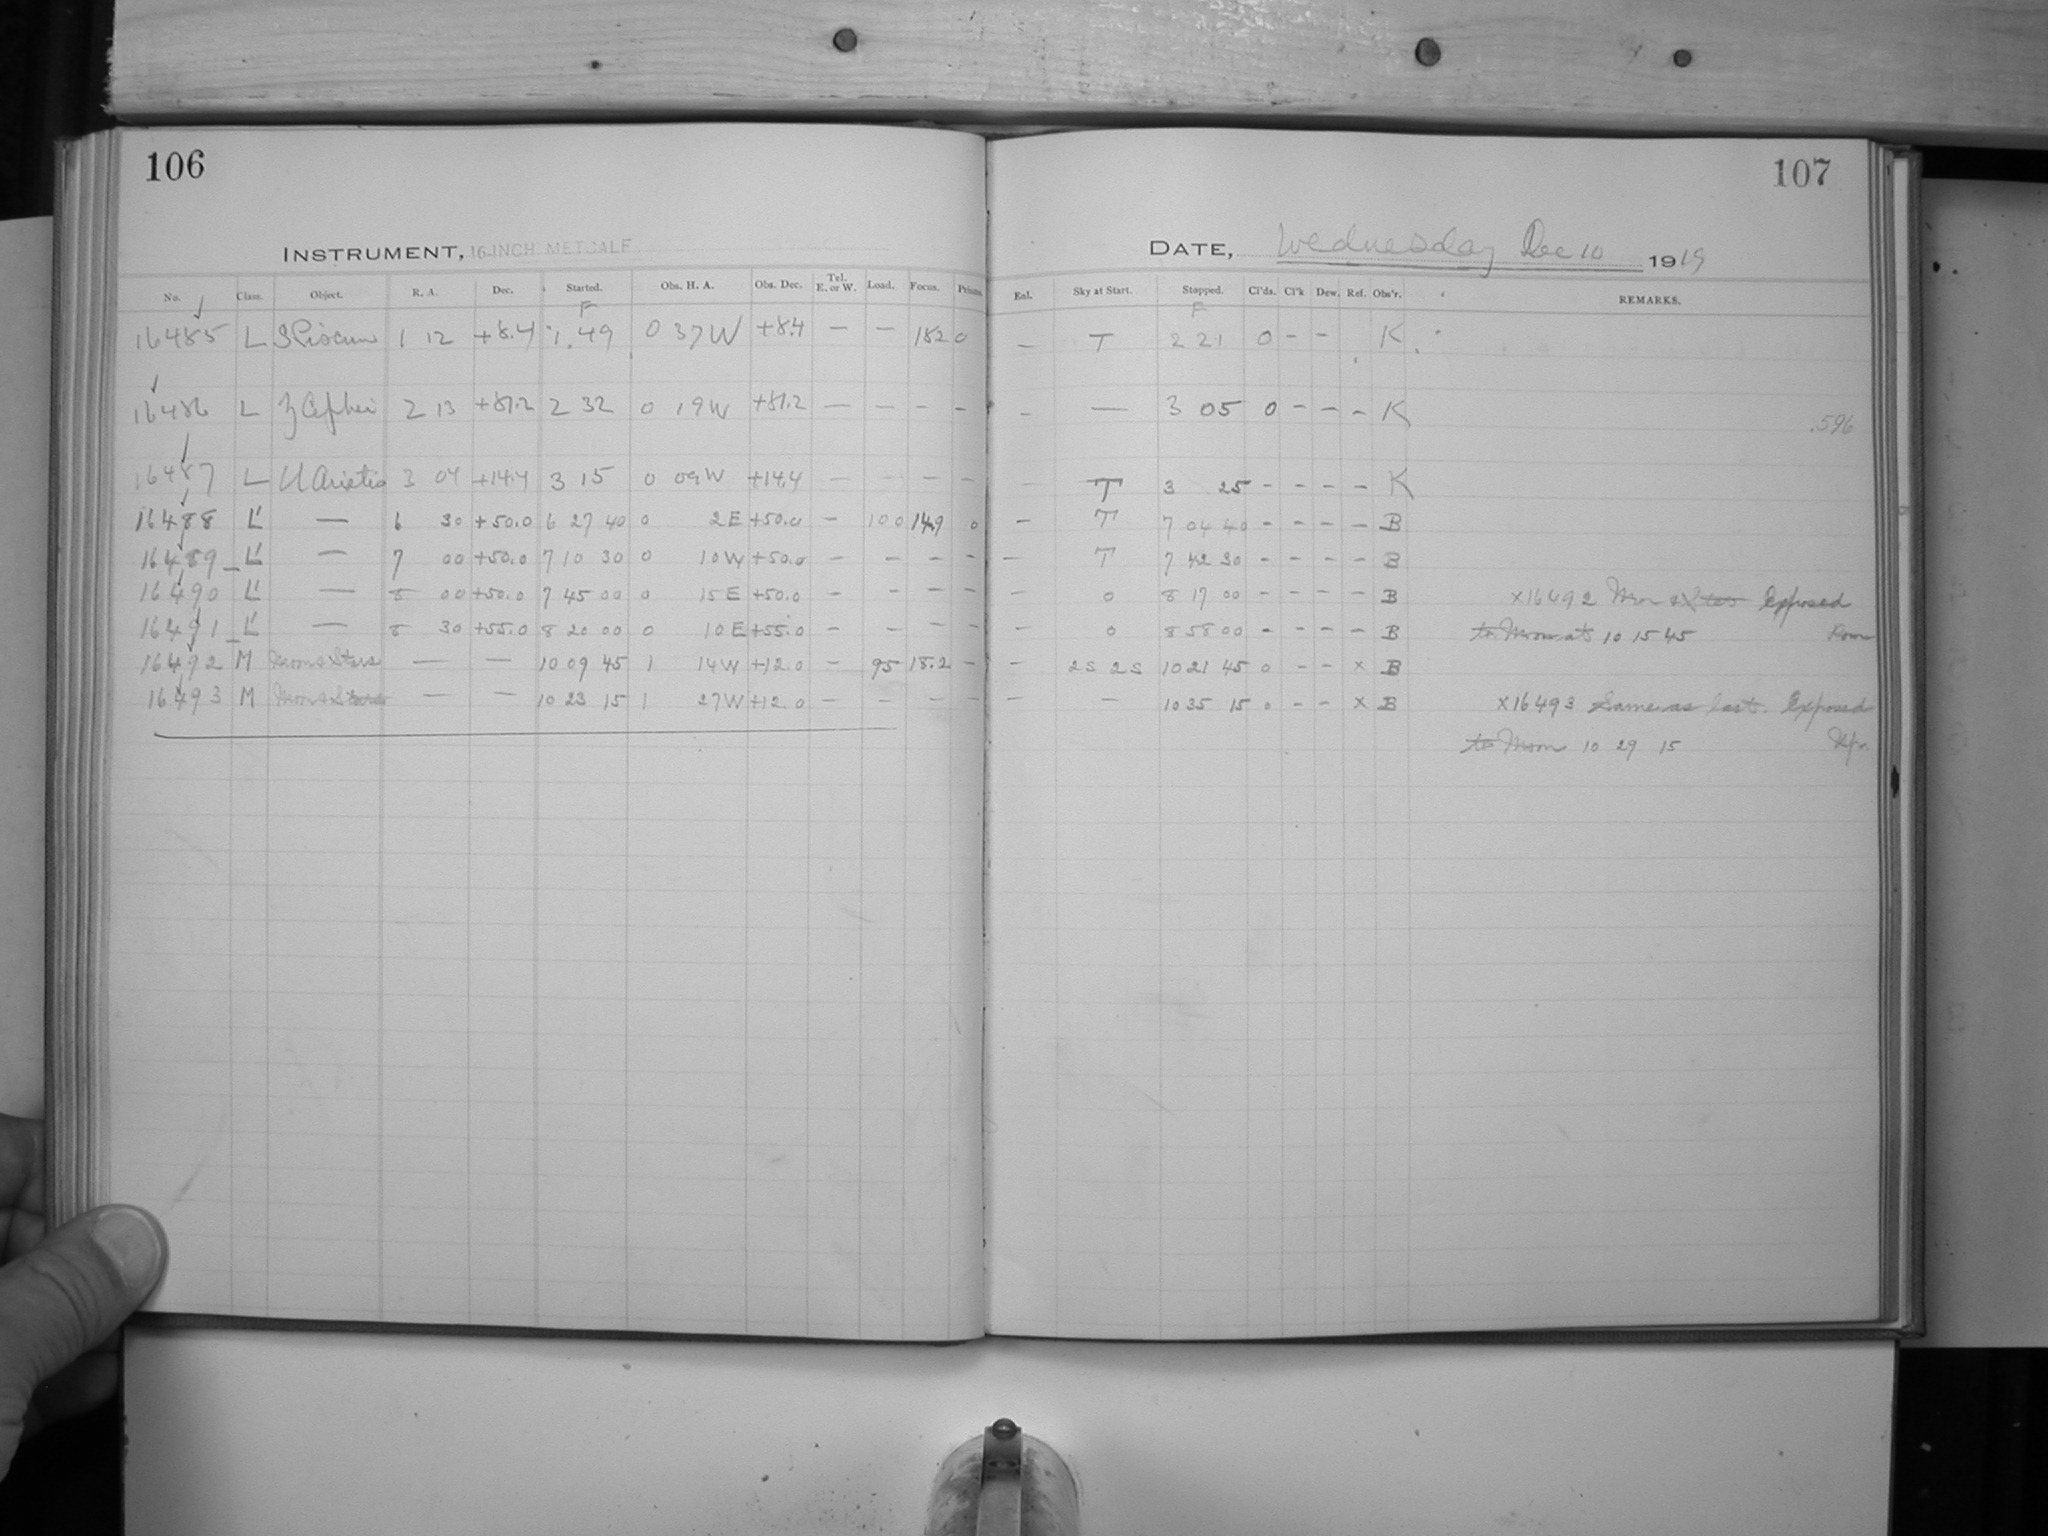 106
107
INSTRUMENT, 16-INCH METCALF
DATE, Wednesday Dec 10 1919
No. Class. Object. R. A. Dec. Started. Obs. H. A. Obs. Dec. Tel. E. or W. Load. Focus. Prisms. Enl. Sky at Start. Stopped. Cl'ds. Cl'k Dew. Ref. Obs'r. REMARKS.
F F
16485 L S Piscium 1 12 +8.4 1.49 0 37W +8.4 — — 182 0 — T 2 21 0 - - K
16486 L Z Cephei 2 13 +81.2 2 32 0 19W +81.2 — — — — - — 3 05 0 - - - K
.596
16487 L U Arietis 3 04 +14.4 3 15 0 09W +14.4 — — — — — T 3 25 - - - - K
16488 L' — 6 30 +50.0 6 27 40 0 2E +50.0 - 100 14.9 0 — T 7 04 40 - - - - B
16489 L' — 7 00 +50.0 7 10 30 0 10W +50.0 - — — — — T 7 42 30 - - - - B
16490 L' — 8 00 +50.0 7 45 00 0 15E +50.0 - — — — — 0 8 17 00 - - - - B ×16492 Moon & Stars Exposed
16491 L' — 8 30 +55.0 8 20 00 0 10E +55.0 - — — — — 0 8 58 00 - - - - B to Moon at 10 15 45
16492 M Moon & Stars — — 10 09 45 1 14W +12.0 - 95 18.2 — — 2S 2S 10 21 45 0 - - × B
16493 M Moon & Stars — — 10 23 15 1 27W +12.0 - — — — — — 10 35 15 0 - - × B ×16493 Same as last. Exposed
to Moon 10 29 15